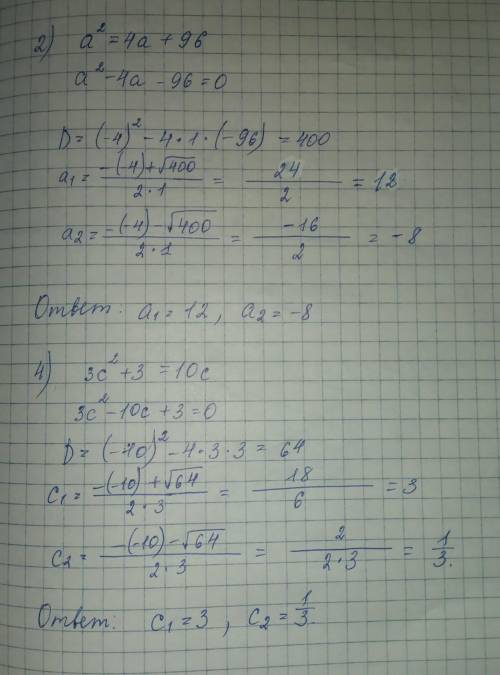 2) a² = 4a + 96
a² - 4a - 96 = 0
D = (-4)² - 4 · 1 · (-96) = 400
a₁ = (-(-4) + √400) / (2 · 1) = 24 / 2 = 12
a₂ = (-(-4) - √400) / (2 · 1) = -16 / 2 = -8
Ответ: a₁ = 12, a₂ = -8
4) 3c² + 3 = 10c
3c² - 10c + 3 = 0
D = (-10)² - 4 · 3 · 3 = 64
c₁ = (-(-10) + √64) / (2 · 3) = 18 / 6 = 3
c₂ = (-(-10) - √64) / (2 · 3) = 2 / (2 · 3) = 1/3.
Ответ: c₁ = 3, c₂ = 1/3.